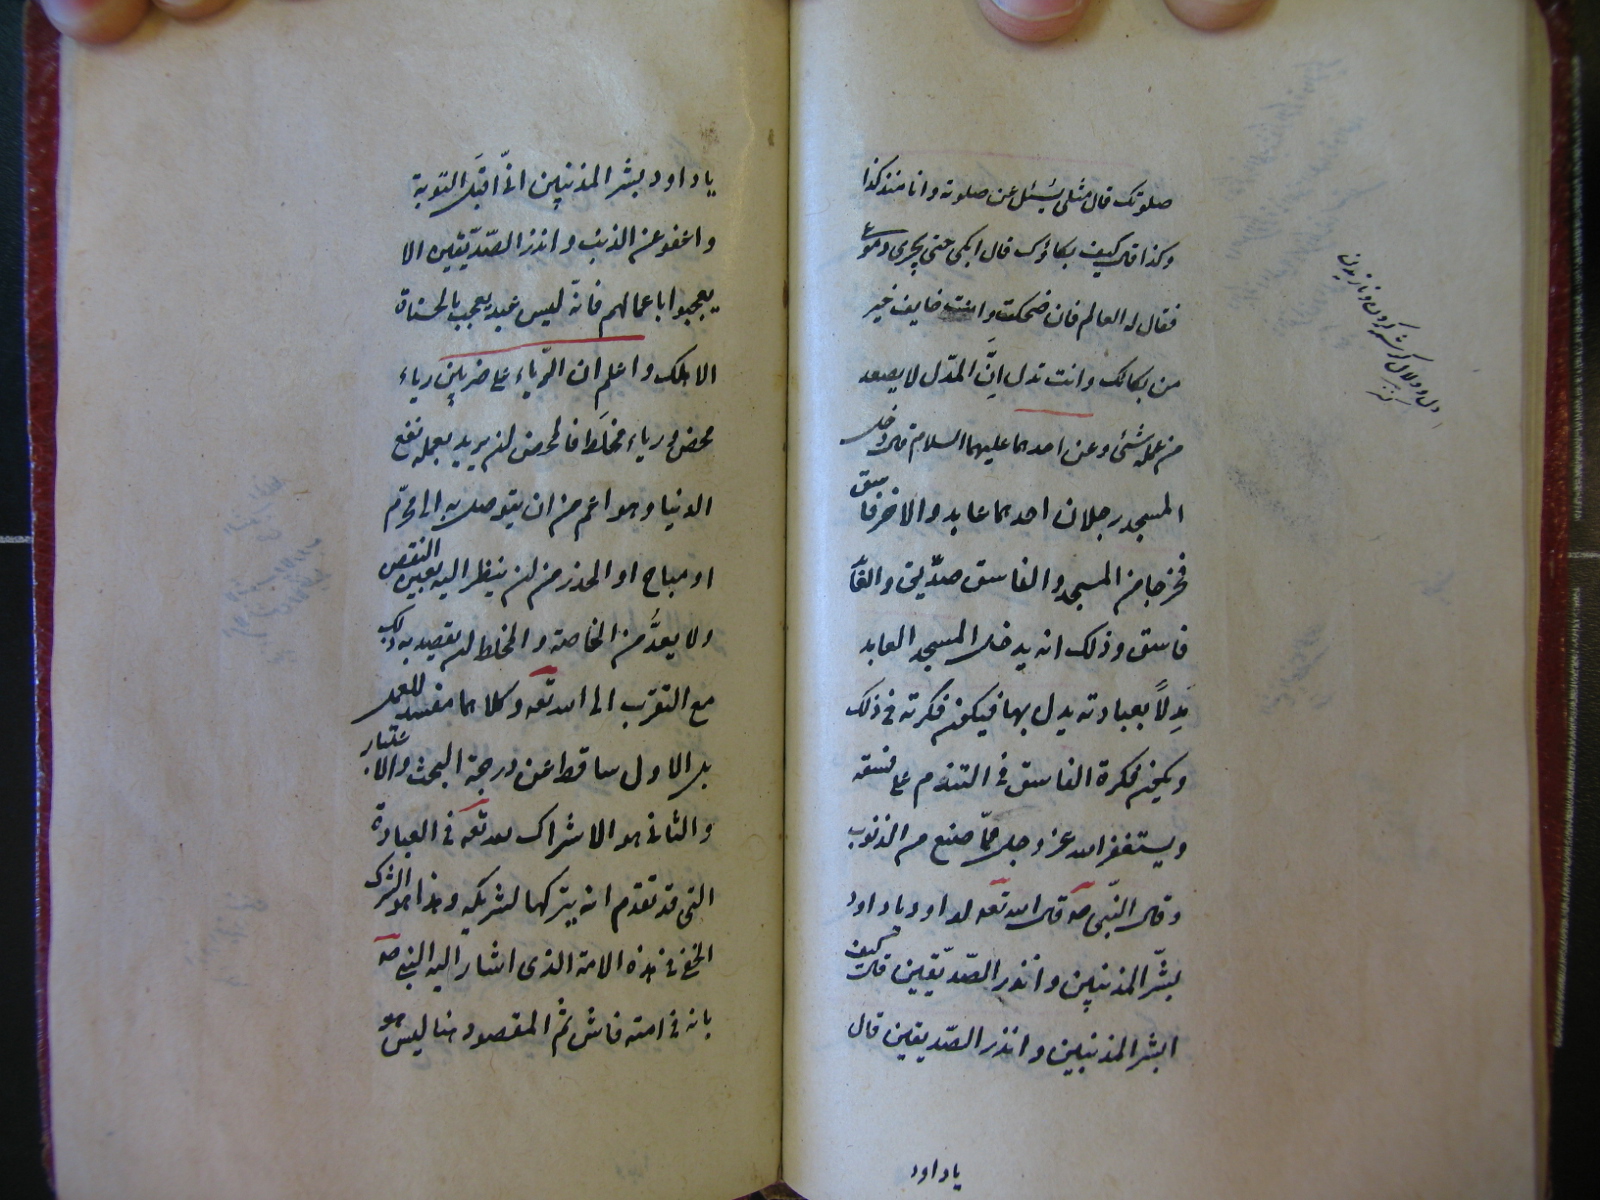 صلوتك قال مثلي يسئل عن صلوته وانا منذ كذا
وكذا قال كيف بكاؤك قال ابكى حتى يجرى دموعى
فقال له العالم فان ضحكت وانت خايف خير
من بكائك وانت تدل انّ المدّل لا يصعد
من عمله شئ وعن احدهما عليهما السلام قال دخل
المسجد رجلان احدهما عابد والاخر فاسق
فخرجا من المسجد والفاسق صدّيق والعابد
فاسق وذلك انه يدخل المسجد العابد
مدلاً بعبادته يدل بها فيكون فكرته في ذلك
ويكون فكرة الفاسق في التندم على فسقه
ويستغفر الله عز وجل ممّا صنع من الذنوب
وقال النّبي صه قال الله تعه لداود يا داود
بشّر المذنبين وانذر الصّدّيقين قال كيف
ابشر المذنبين وانذر الصّديقين قال
يا داود
دل ودلال كرشمه كردن وناز
كنز
يا داود بشر المذنبين انّى اقبل التوبة
واعفو عن الذنب وانذر الصّدّيقين الا
يعجبوا باعمالهم فانّه ليس عبد يعجب بالحسناة
الا هلك واعلم ان الرّياء على ضربين رياء
محض ورياء مخلط فالمحض ان يريد بعمله نفع
الدنيا وهو اعم من ان يتوصل به الى محرّم
او مباح او الحذر من ان ينظر اليه بعين النقص
ولا يعدّ من الخاصة والمخلط ان يقصد به ذلك
مع التقرّب الى الله تعه وكلاهما مفسد للعمل
بل الاول ساقط عن درجة البحث والاعتبار
والثانى هو الاشراك لله تعه في العبادة
التى قد تقدم انه يتركها لشريكه وهذا هو الشرك
الخفى في هذه الامة الذى اشار اليه النبى صه
بانه في امته فاش ثم المقصود هنا ليس هو